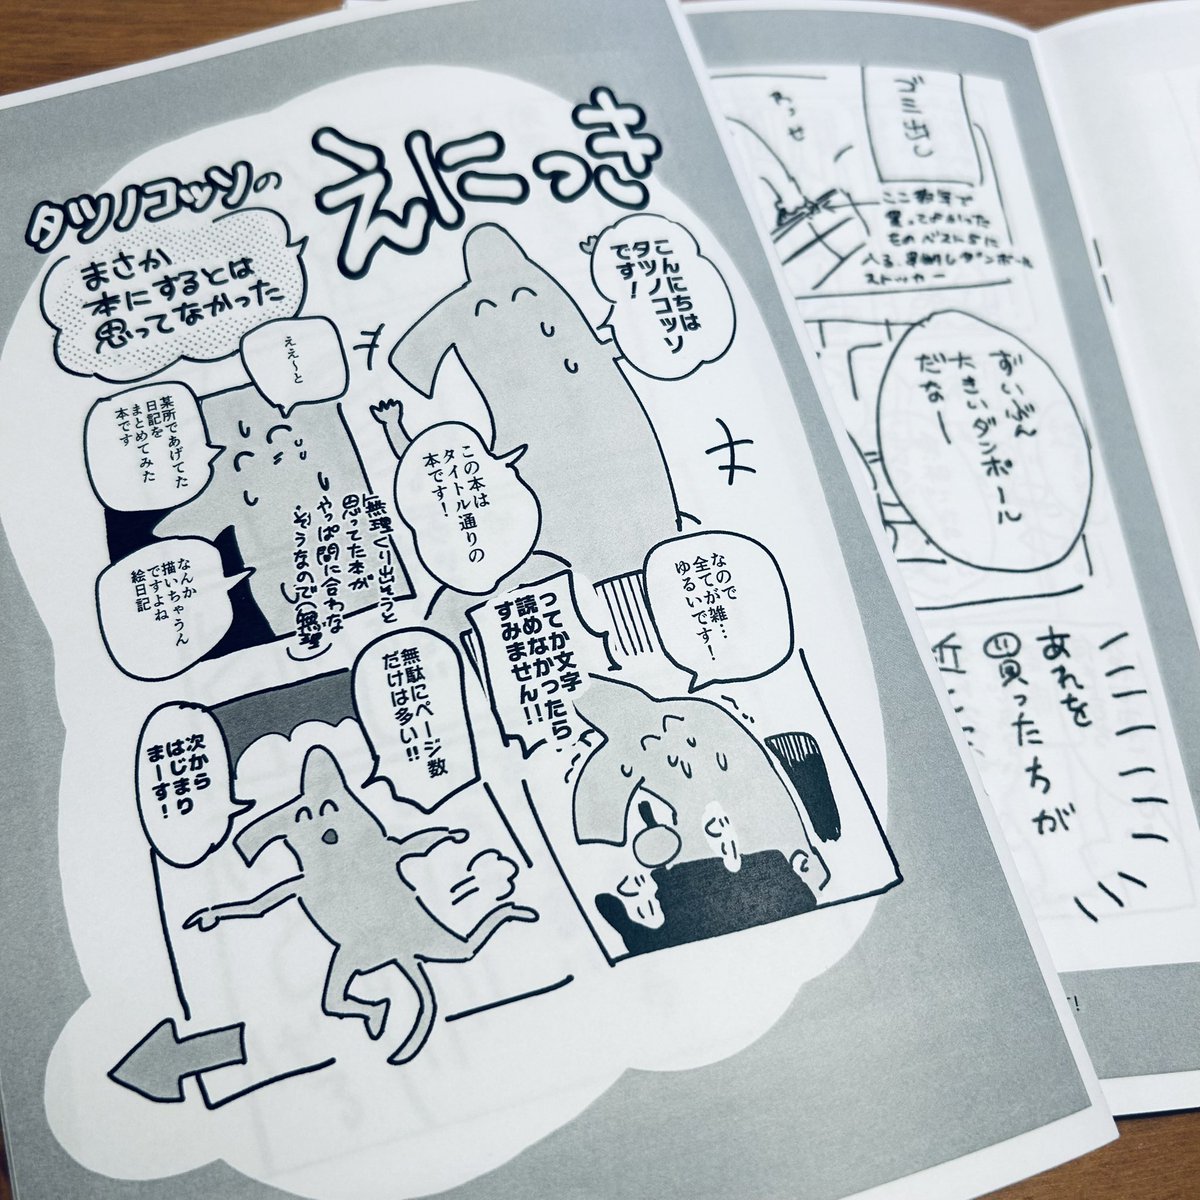 タツノコッソの
えにっき
まさか
本にするとは
思ってなかった
こんにちは
タツノコッソ
です!
この本は
タイトル通りの
本です!
ええ〜と
某所であげてた
日記を
まとめてみた
本です
無理くり出そうと
思ってた本が
やっぱ間に合わな
そうなので(無理
なんか
描いちゃうん
ですよね
絵日記
なので
全てが雑…
ゆるいです!
ってか文字
読めなかったら
すみません!!
無駄にページ数
だけは多い!!
次から
はじまり
まーす!
ゴミ出し
ここ数年で
買ってよかった
ものベスト5に
入る、
ダンボール
ストッカー
ずいぶん
大きいダンボール
だなー
あれを
買ったちが